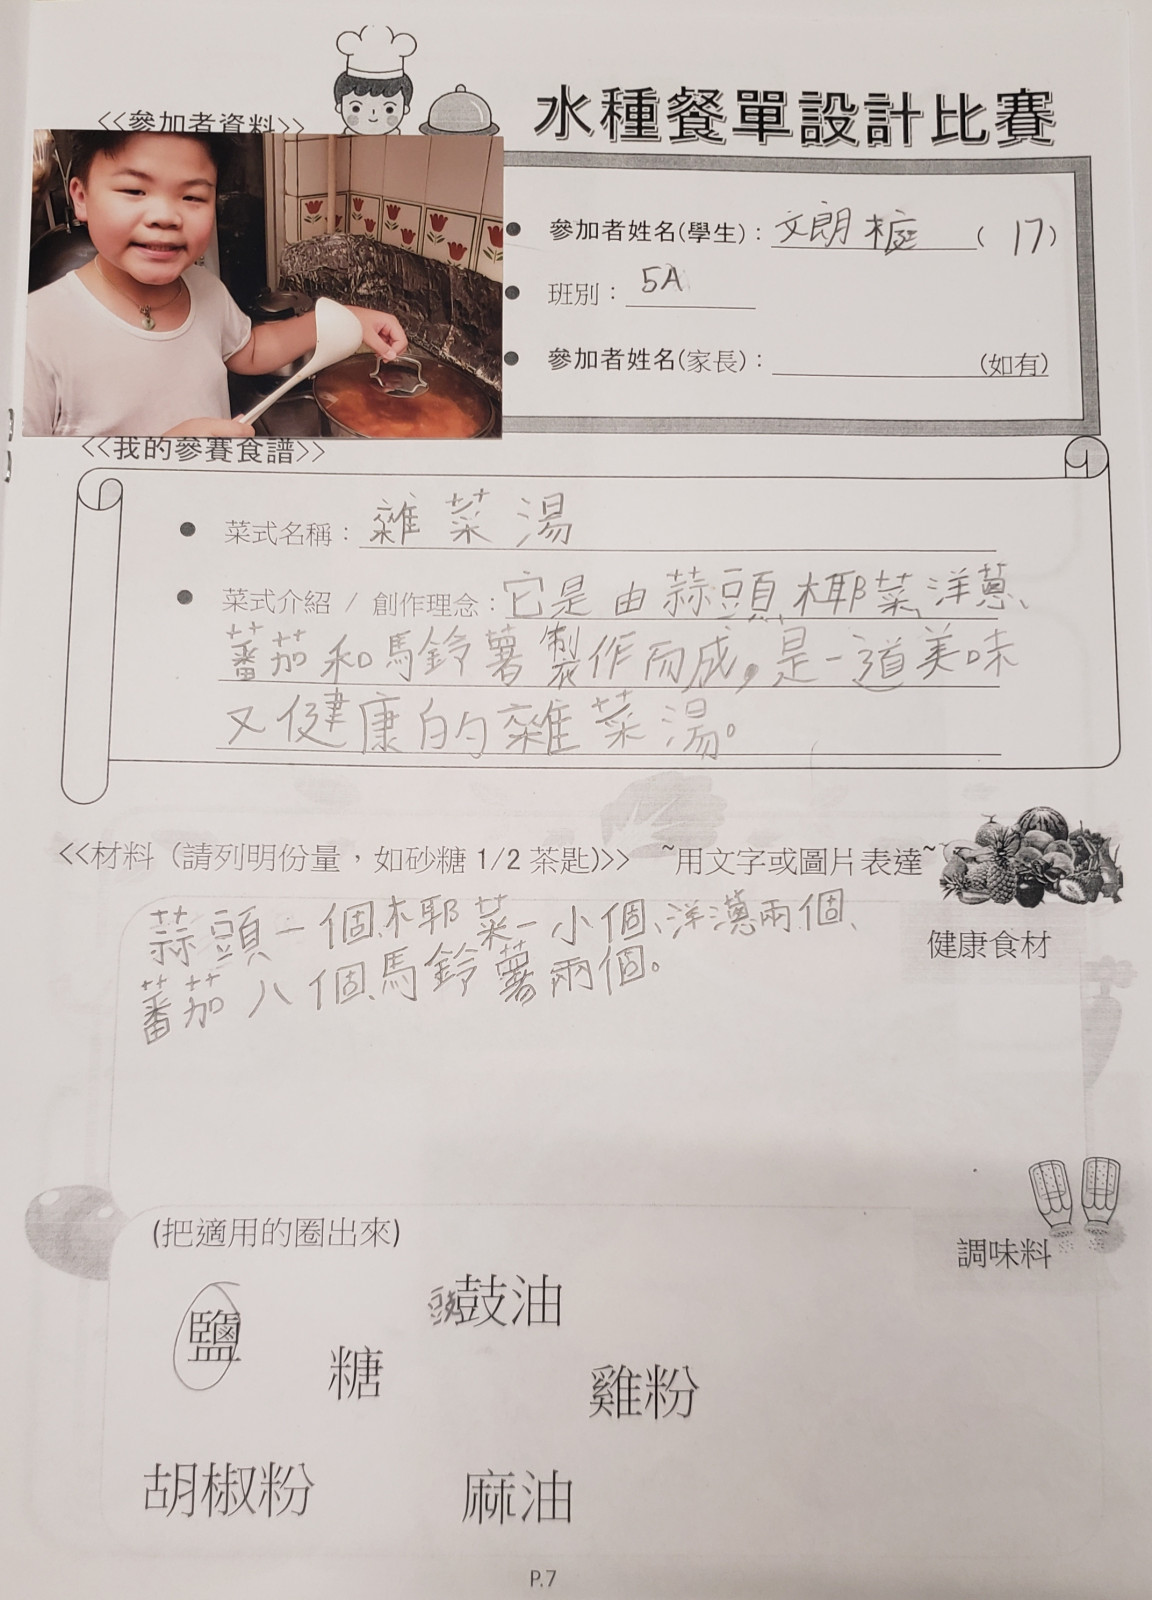 水種餐單設計比賽
<<參加者資料>>
參加者姓名(學生)：文朗楟 ( 17 )
班別：5A
參加者姓名(家長)： (如有)
<<我的參賽食譜>>
菜式名稱：雜菜湯
菜式介紹 / 創作理念：它是由蒜頭、椰菜、洋蔥、
蕃茄和馬鈴薯製作而成，是一道美味
又健康的雜菜湯。
<<材料 (請列明份量，如砂糖 1/2 茶匙)>> ~用文字或圖片表達~
蒜頭一個、椰菜一小個、洋蔥兩個、
蕃茄八個、馬鈴薯兩個。
健康食材
(把適用的圈出來)
調味料
鹽
鼓油
糖
雞粉
胡椒粉
麻油
P.7